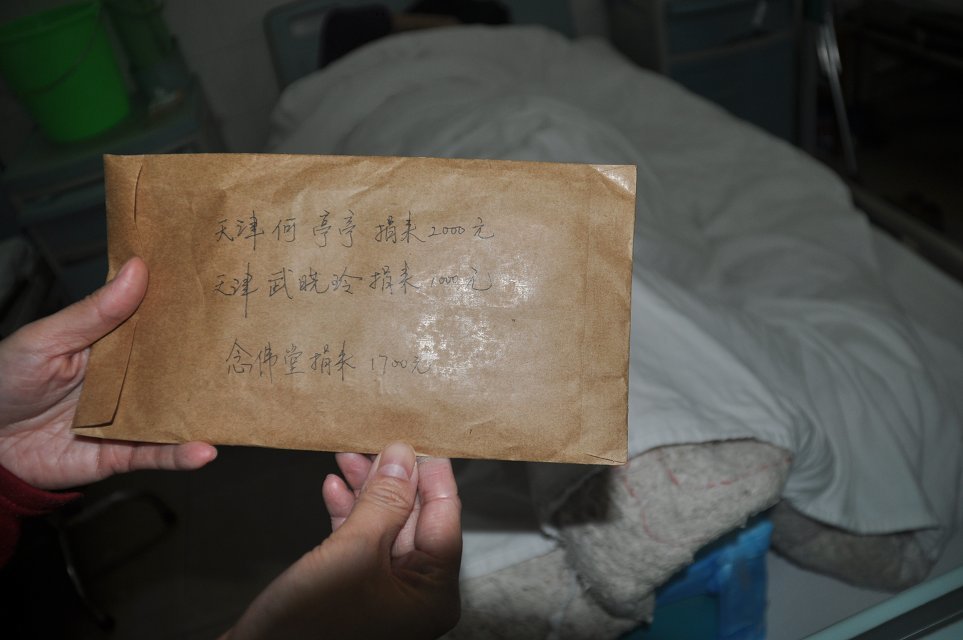 天津 何亭亭 捐来 2000元
天津 武晓玲 捐来 1000元
念佛堂捐来 1700元